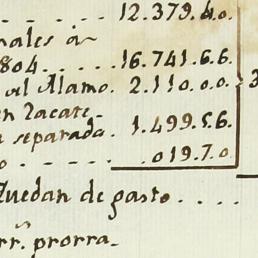 - . - - - 12.379.4.0.
nales á
804 - - - . 16.741.6.6.
al Alamo. 2.110.0.0.
en Zacate-
a separada. 1.499.5.6.
o - - - - - . 019.7.0
Quedan de gasto . . . .
rr.s prorra-